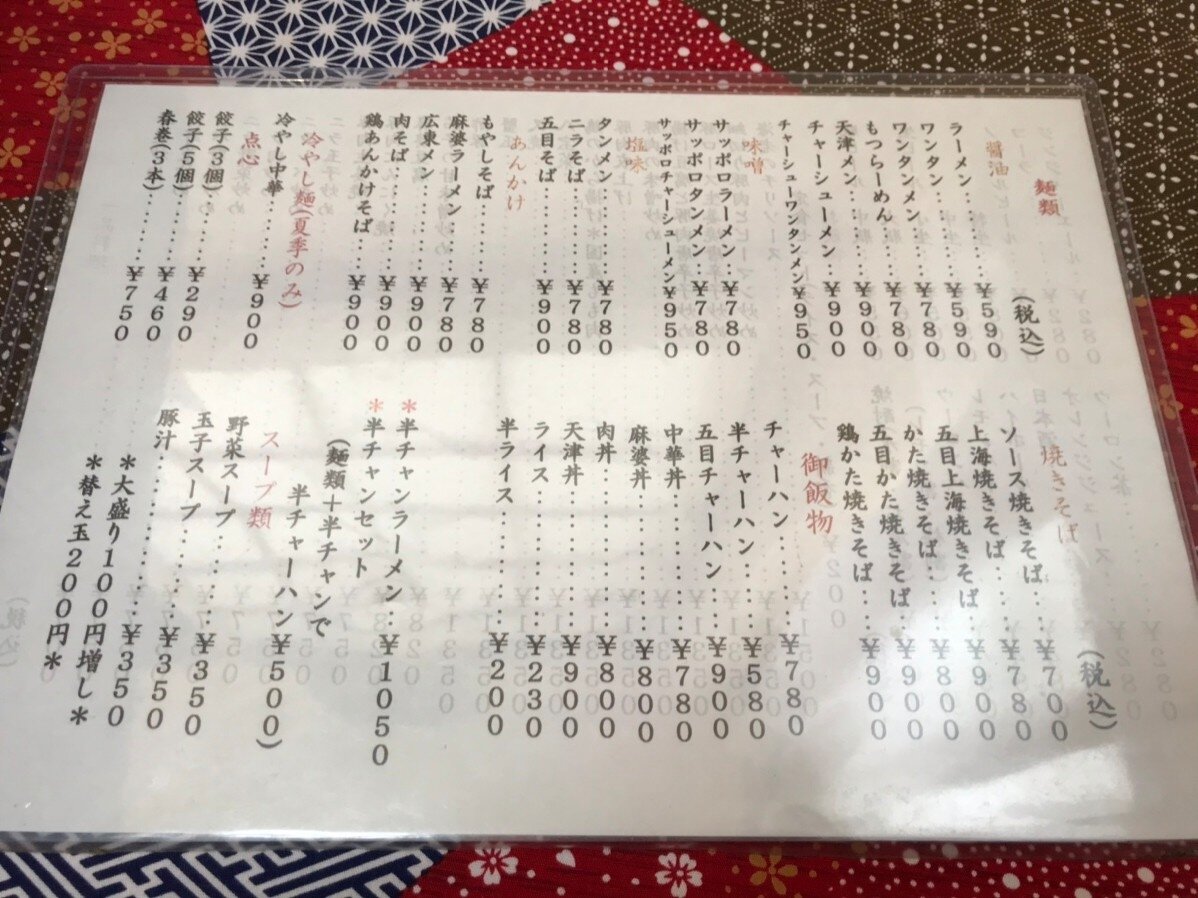 麺類 (税込)
醤油
ラーメン……¥590
ワンタン……¥590
ワンタンメン……¥780
もつらーめん……¥780
天津メン……¥900
チャーシューメン……¥900
チャーシューワンタンメン¥950
味噌
サッポロラーメン…¥780
サッポロタンメン…¥780
サッポロチャーシューメン¥950
塩味
タンメン……¥780
ニラそば……¥780
五目そば……¥900
あんかけ
もやしそば……¥780
麻婆ラーメン……¥780
広東メン……¥900
肉そば……¥900
鶏あんかけそば……¥900
冷やし麺(夏季のみ)
冷やし中華……¥900
点心
餃子(3個)……¥290
餃子(5個)……¥460
春巻(3本)……¥750
焼きそば (税込)
ソース焼きそば……¥700
上海焼きそば……¥780
五目上海焼きそば…¥900
かた焼きそば……¥800
五目かた焼きそば…¥900
鶏かた焼きそば……¥900
御飯物
チャーハン……¥780
半チャーハン……¥580
五目チャーハン……¥900
中華丼……¥780
麻婆丼……¥800
肉丼……¥800
天津丼……¥900
ライス……¥230
半ライス……¥200
*半チャンラーメン…¥1050
*半チャンセット
(麺類+半チャンで
半チャーハン¥500)
スープ類
野菜スープ……¥350
玉子スープ……¥350
豚汁……¥350
*大盛り100円増し*
*替え玉200円*